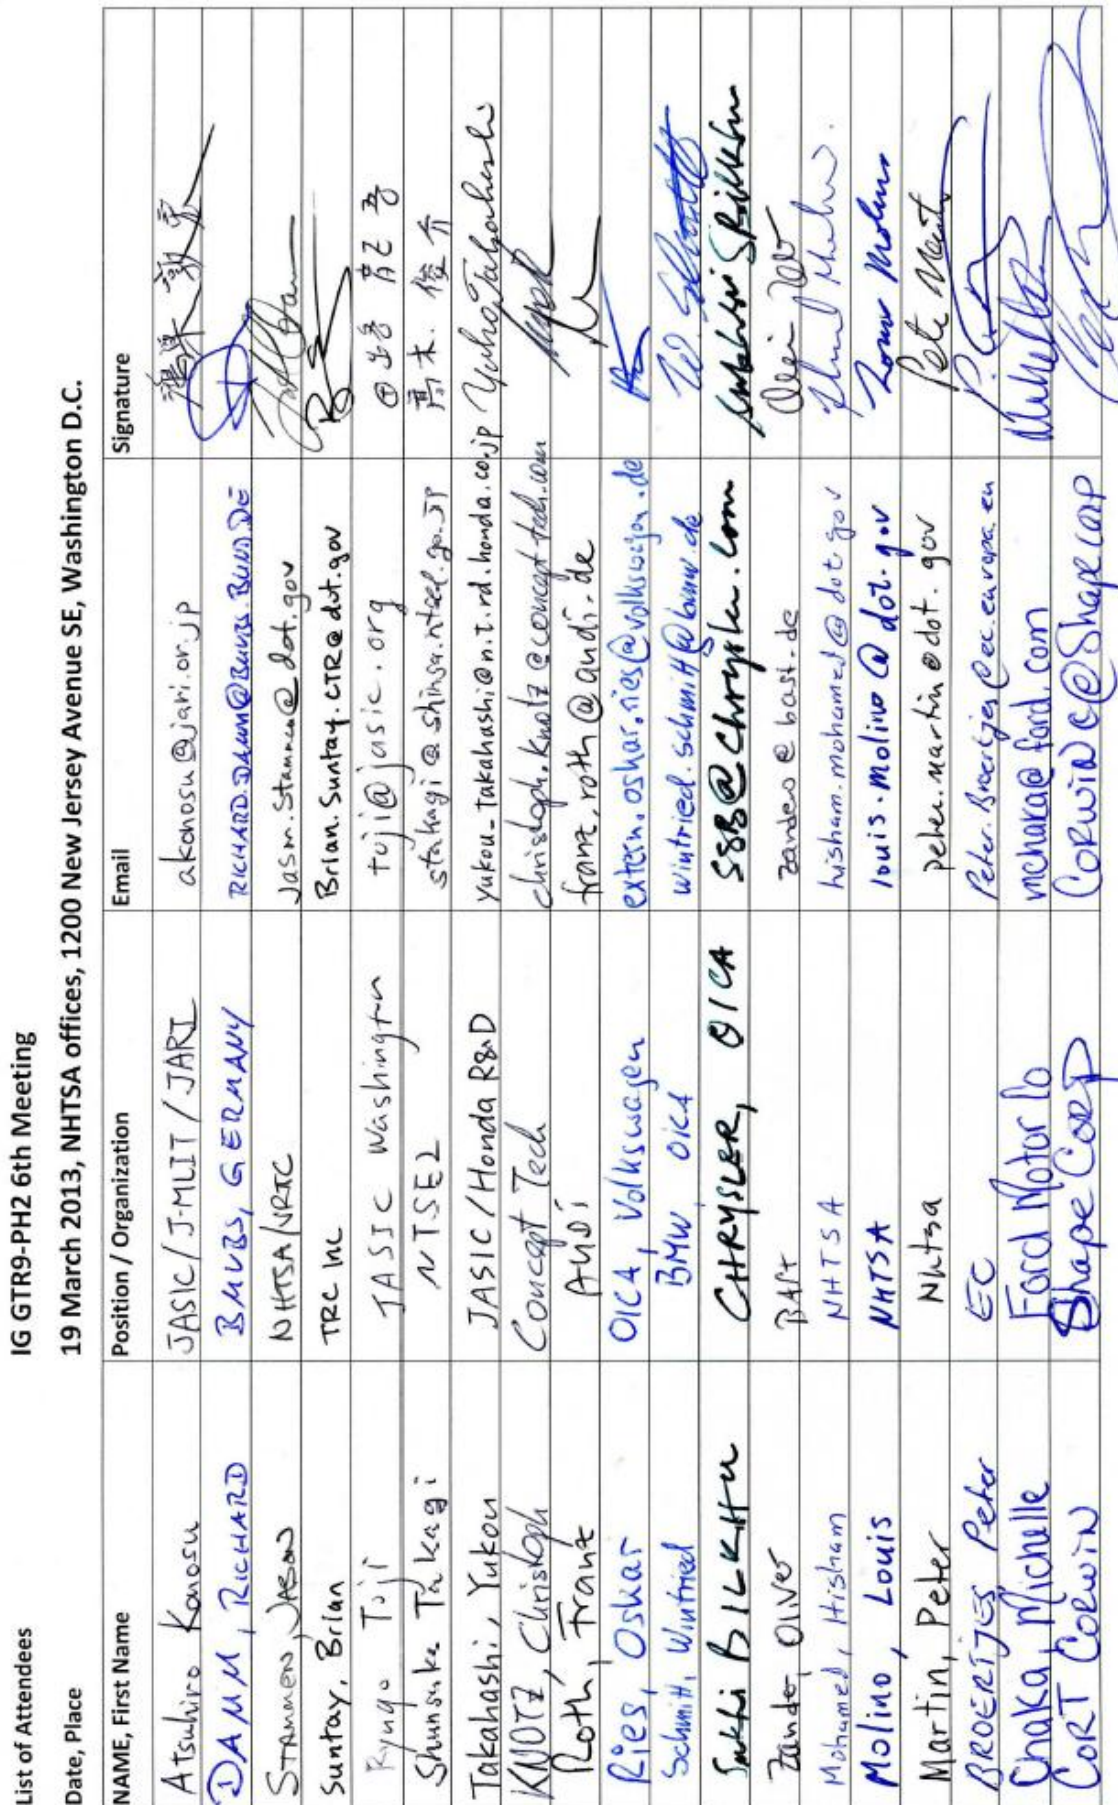 List of Attendees IG GTR9-PH2 6th Meeting
Date, Place 19 March 2013, NHTSA offices, 1200 New Jersey Avenue SE, Washington D.C.
NAME, First Name Position / Organization Email Signature
Atsuhiro Konosu JASIC/J-MLIT/JARI akonosu@jari.or.jp
DAMM, RICHARD BMVBS, GERMANY RICHARD.DAMM@BMVBS.BUND.DE
STAMMEN, JASON NHTSA/VRTC Jason.Stammen@dot.gov
Suntay, Brian TRC Inc Brian.Suntay.CTR@dot.gov
Ryugo Toji JASIC Washington toji@jasic.org
Shunsuke Takagi NTSEL stakagi@shinsa.ntsel.go.jp 高木 俊介
Takahashi, Yukou JASIC/Honda R&D yukou_takahashi@n.t.rd.honda.co.jp
KNOTZ, Christoph Concept Tech christoph.knotz@concept-tech.com
Roth, Franz AUDI franz.roth@audi.de
Ries, Oskar OICA, Volkswagen extern.oskar.ries@volkswagen.de
Schmitt, Winfried BMW OICA winfried.schmitt@bmw.de
Sukhi BILKHU CHRYSLER, OICA SSB@Chrysler.com
Zander, Oliver BASt zander@bast.de
Mohamed, Hisham NHTSA hisham.mohamed@dot.gov
Molino, Louis NHTSA louis.molino@dot.gov Louis Molino
Martin, Peter Nhtsa peter.martin@dot.gov Pete Martin
BROERTJES Peter EC Peter.Broertjes@ec.europa.eu
Chaka, Michelle Ford Motor Co mchaka@ford.com
CORT CORWIN Shape CORP CORWINC@Shapecorp